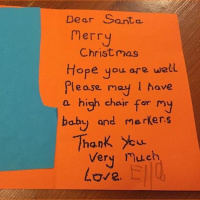 Dear Santa
Merry
Christmas
Hope you are well
Please may I have
a high chair for my
baby and markers
Thank You
very much
Love. Ella